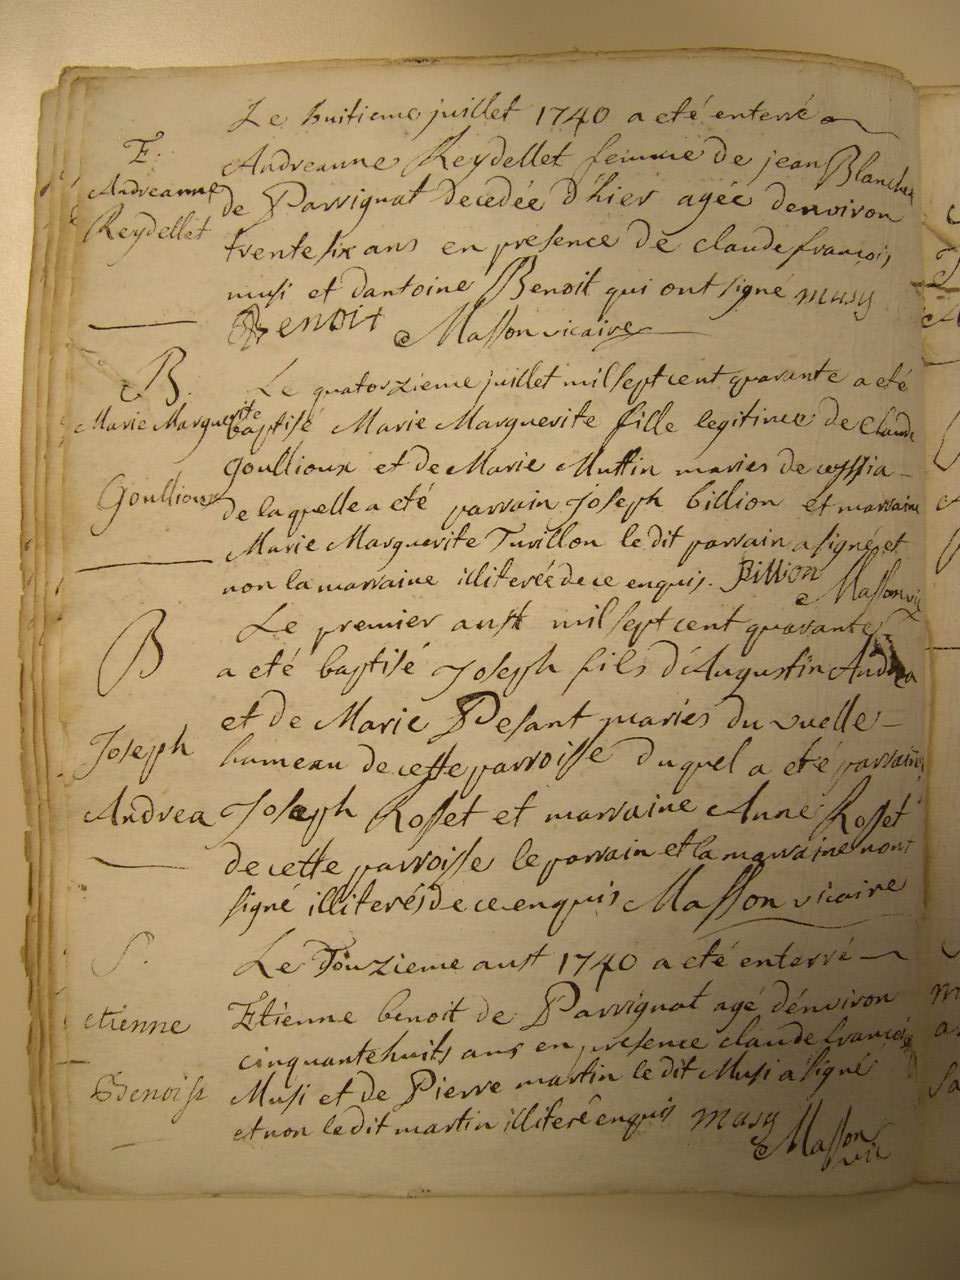 Le huitieme juillet 1740 a eté enterré
E.
Andreanne
Reydellet
Andreanne Reydellet femme de jean Blanchet
de Parvignat decedée d'hier agée denviron
trente six ans en presence de claude françois
musi et dantoine Benoit qui ont signé musy
Benoit Masson vicaire
B.
Marie Marguerite
Goullioux
Le quatorzieme juillet mil sept cent quarante a eté
baptisé Marie Marguerite fille legitimee de Claude
Goullioux et de Marie Muttin maries de ceyssia
de laquelle a eté parrain Joseph billion et marraine
Marie Marguerite Turillon le dit parrain a signé et
non la marraine illiterée de ce enquis. Billion
Masson vic
B
Joseph
Andrea
Le premier aust mil sept cent quarante
a eté baptisé Joseph fils d'Augustin Andrea
et de Marie Pesant maries du
hameau de cette parroisse duquel a eté parrain
Joseph Rosset et marraine Anne Rosset
de cette parroisse le parrain et la marraine nont
signé illiterés de ce enquis Masson vicaire
S.
etienne
Benoist
Le Douzieme aust 1740 a eté enterré
Etienne benoit de Parvignat agé dénviron
cinquante huits ans en presence claude françois
Musi et de Pierre martin le dit Musi a signé
et non le dit martin illiteré enquis musy
Masson
vic